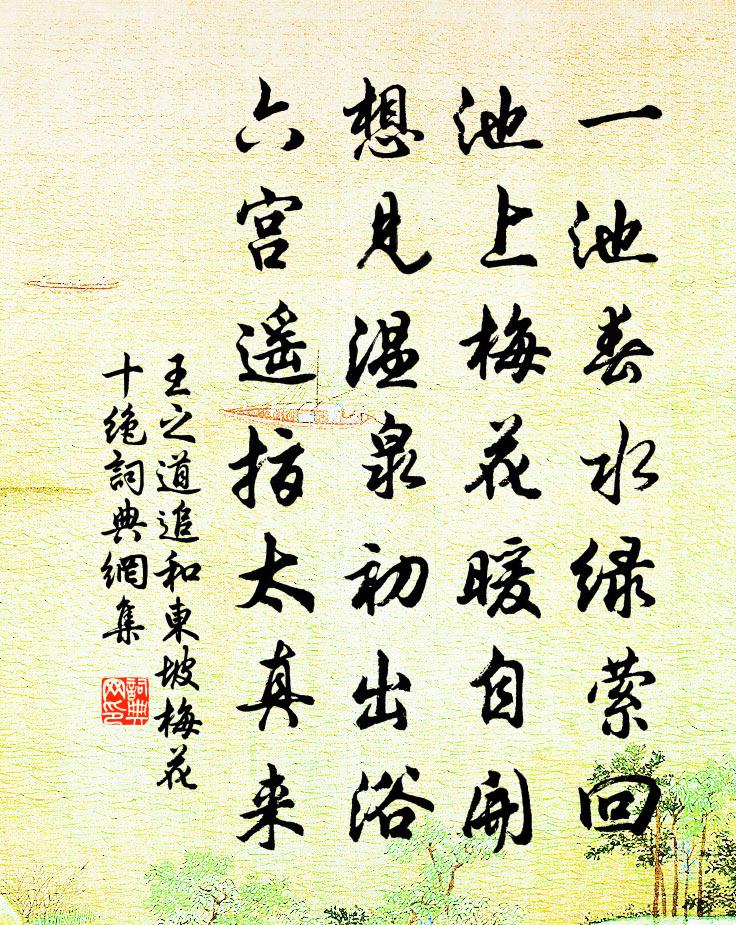 一池春水绿萦回
池上梅花暖自開
想見温泉初出浴
六宫遥指太真来
王之道追和東坡梅花
十绝詞典網集
詞典
网印